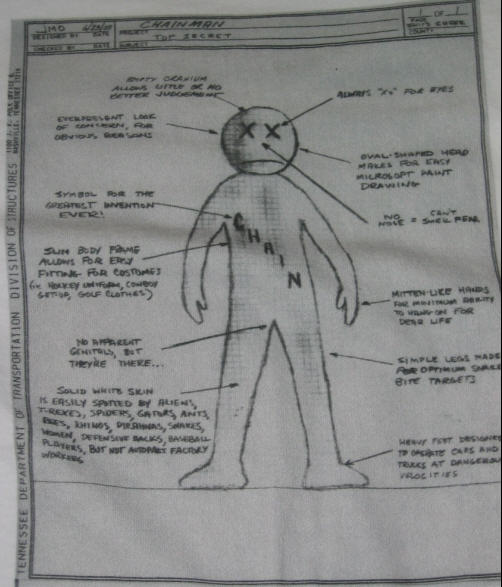 JMO
DESIGNED BY DATE
CHECKED BY DATE
CHAINMAN
PROJECT
TOP SECRET
SUBJECT
1 OF 1
PAGE
COUNTY
TENNESSEE DEPARTMENT OF TRANSPORTATION DIVISION OF STRUCTURES
NASHVILLE, TENNESSEE
EMPTY CRANIUM
ALLOWS LITTLE OR NO
BETTER JUDGEMENT
EVERPRESENT LOOK
OF CONCERN, FOR
OBVIOUS REASONS
ALWAYS "X's" FOR EYES
OVAL-SHAPED HEAD
MAKES FOR EASY
MICROSOFT PAINT
DRAWING
SYMBOL FOR THE
GREATEST INVENTION
EVER!
NO NOSE = CAN'T SMELL FEAR
CHAIN
SLIM BODY FRAME
ALLOWS FOR EASY
FITTING FOR COSTUMES
(i.e. HOCKEY UNIFORM, COWBOY
GET-UP, GOLF CLOTHES)
MITTEN-LIKE HANDS
FOR MINIMUM ABILITY
TO HANG-ON FOR
DEAR LIFE
NO APPARENT
GENITALS, BUT
THEY'RE THERE...
SIMPLE LEGS MADE
FOR OPTIMUM SNAKE
BITE TARGETS
SOLID WHITE SKIN
IS EASILY SPOTTED BY ALIENS,
T-REXES, SPIDERS, GATORS, ANTS,
BEES, RHINOS, PIRANHAS, SNAKES,
WOMEN, DEFENSIVE BACKS, BASEBALL
PLAYERS, BUT NOT AUTOPART FACTORY
WORKERS
HEAVY FEET DESIGNED
TO OPERATE CARS AND
TRUCKS AT DANGEROUS
VELOCITIES